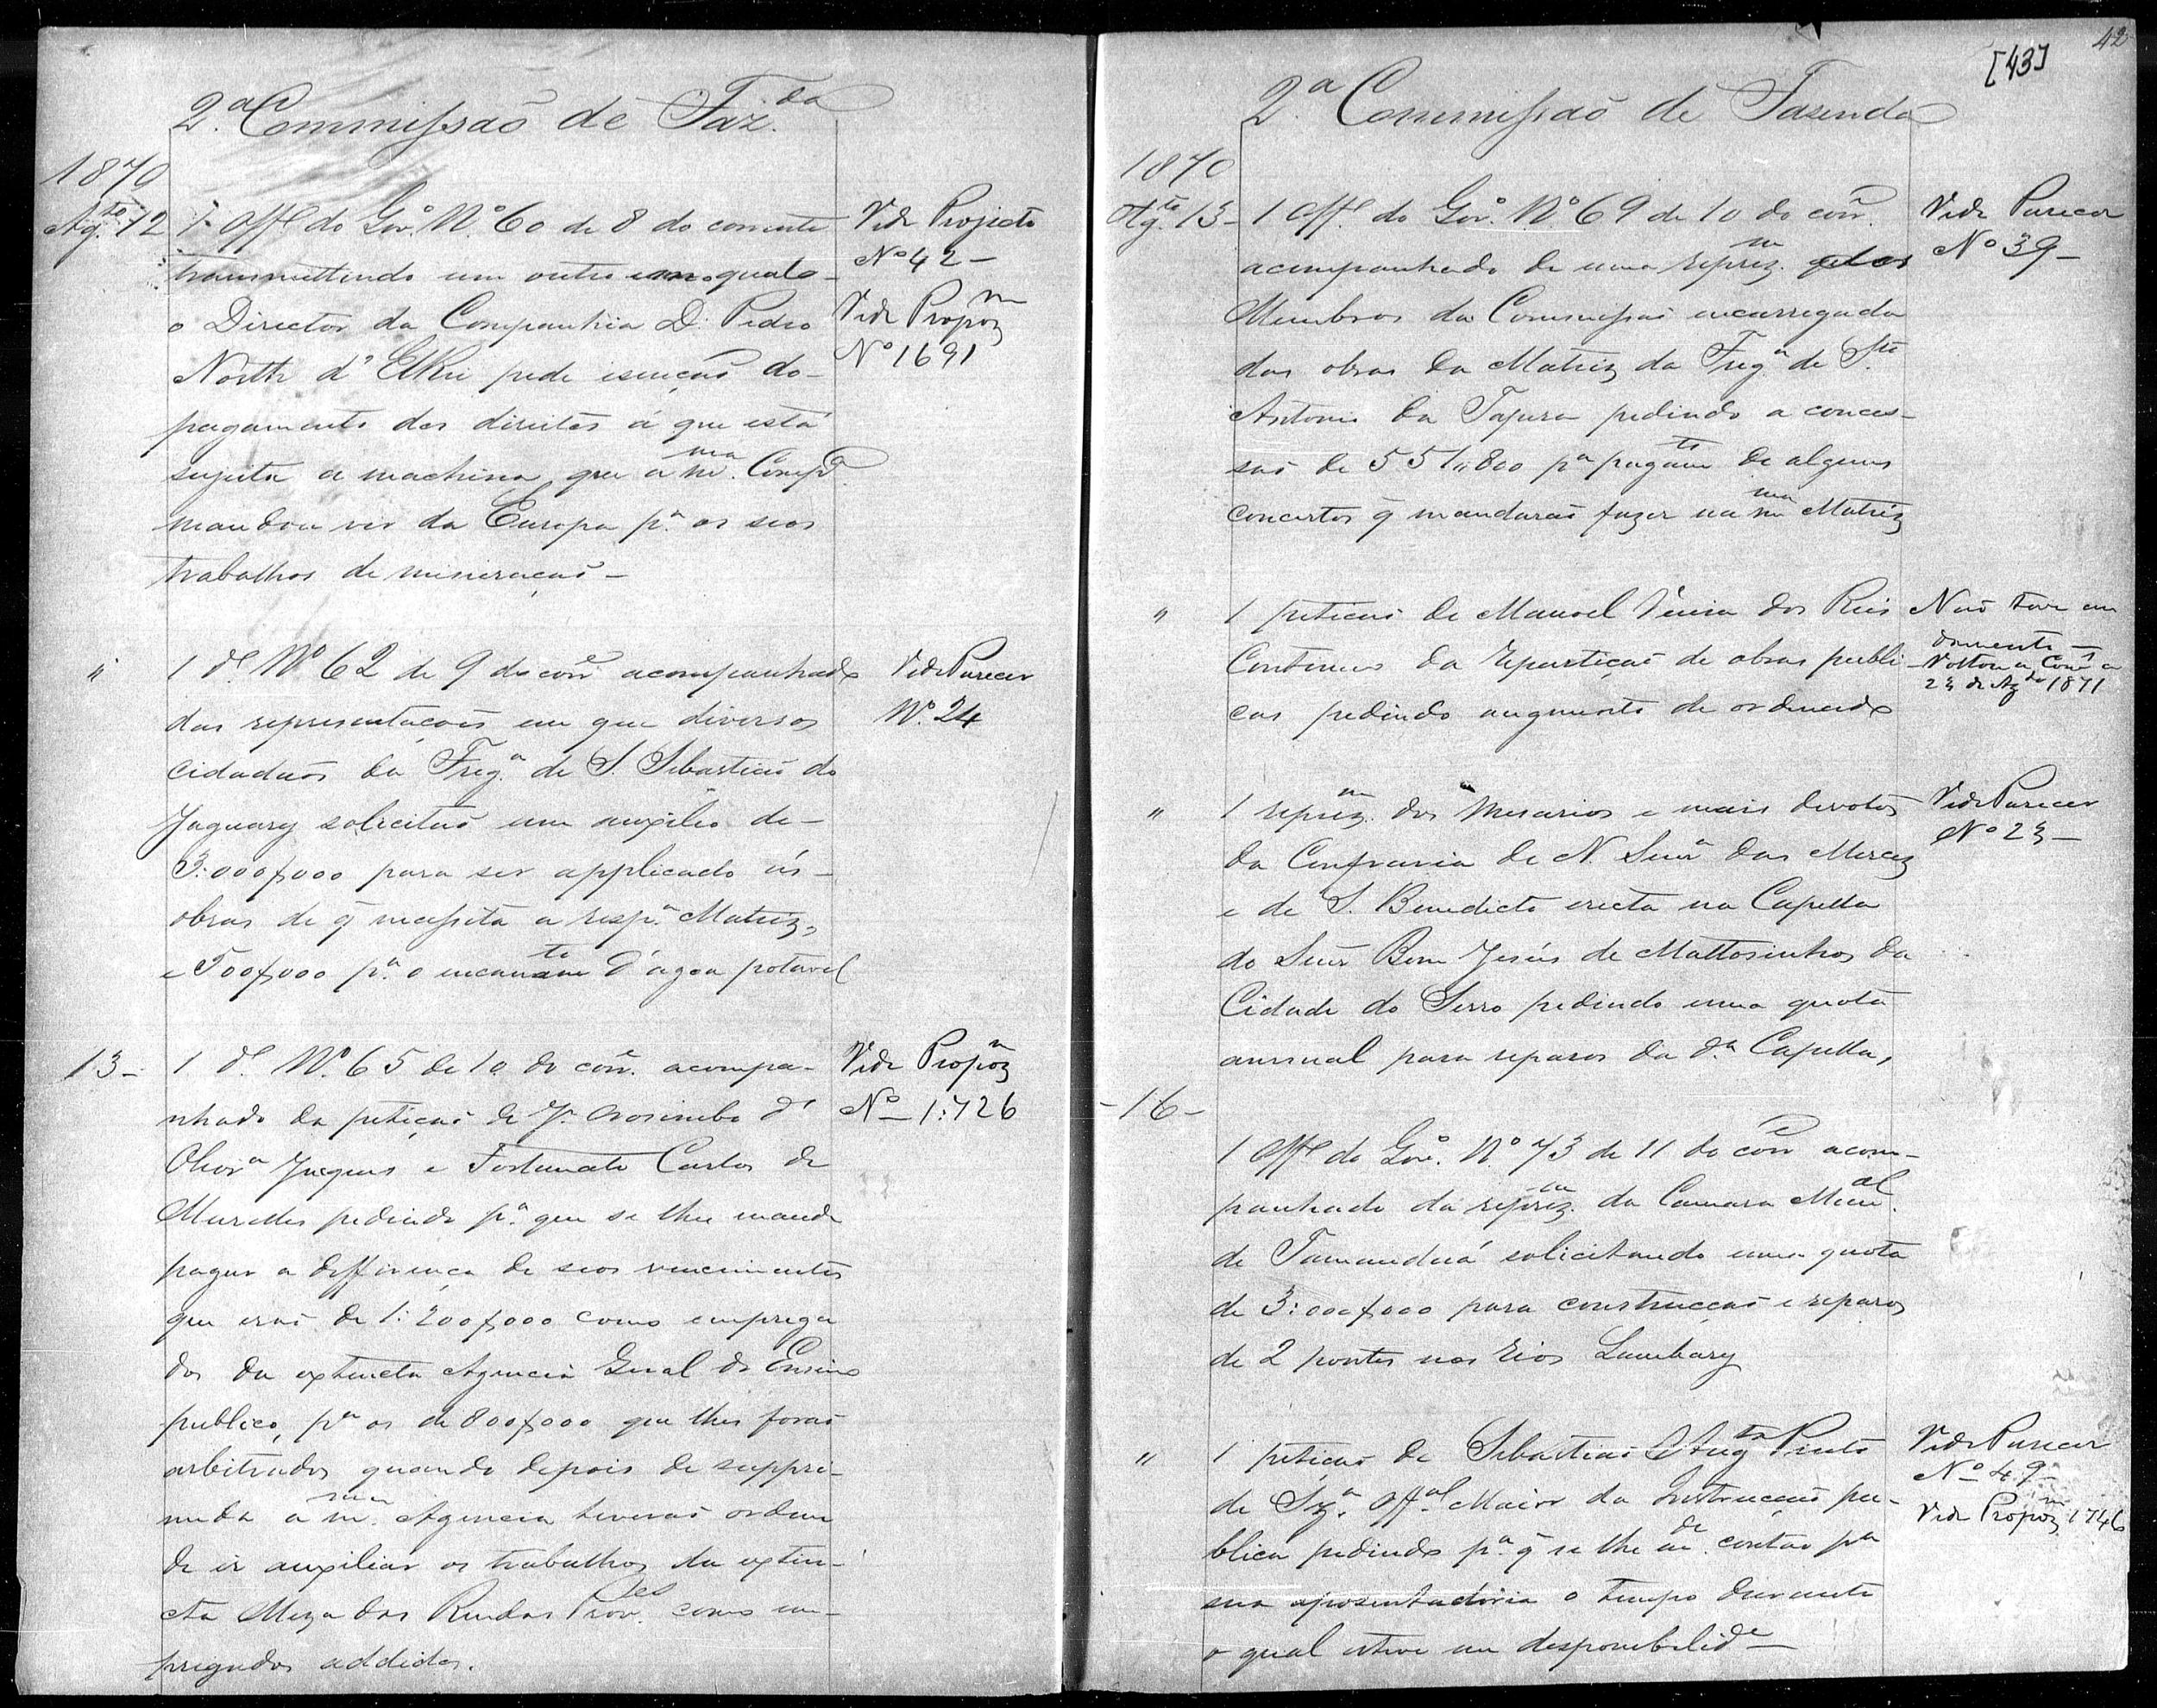 2.ª Commissaõ de Faz.da
1870
Ag.to 12 1 Offº do Gov.º N.º 60 de 8 do corrente
transmittindo um outro em o qual o
o Director da Companhia D. Pedro
North d'ElRei pede isençaõ do
pagamento dos direitos á que está
sugeita a machina que a m.ma Comp.ª
mandou vir da Europa p.ª os seos
trabalhos de mineraçaõ –
Vide Projecto
Nº 42 –
Vide Propoz.m
Nº 1691
" 1 dº Nº 62 de 9 do corr.e acompanhado
das representaçoẽs em que diversos
cidadaõs da Freg.ª de S. Sebastiaõ do
Jaguary solicitaõ um auxilio de
3:000$000 para ser applicado ás
obras de q̃ necessita a resp.ª Matriz,
e 500$000 p.ª o encanam.to d'agoa potavel
Vide Parecer
Nº 24
13 – 1 dº Nº 65 de 10 do corr.e acompa-
nhado da petiçaõ de J. Orosimbo d'
Olivr.ª Jacques e Fortunato Carlos de
Meirelles pedindo p.ª que se lhes mande
pagar a differença de seos vencimentos
que eraõ de 1:200$000 como emprega
dos da extincta Agencia Geral do Ensino
publico, p.ª os de 800$000 que lhes foraõ
arbitrados quando depois de suppri-
mida a m.ma Agencia tiveraõ ordem
de ir auxiliar os trabalhos da extin-
cta Meza das Rendas Prov.es como em-
pregados addidos.
Vide Propoz.m
Nº 1:726
42
[43]
2.ª Commissaõ de Fazenda
1870
Ag.to 13 – 1 Offº do Gov.º Nº 69 de 10 do corr.
acompanhado de uma reprez.m pelos
Membros da Commissaõ encarregada
das obras da Matriz da Freg.ª de S.to
Antonio da Tapera pedindo a conces-
saõ de 551"800 p.ª pagam.to de alguns
concertos q̃ mandaraõ fazer na m.ma Matriz
Vide Parecer
Nº 39 –
" 1 petiçaõ de Manoel Vieira dos Reis
Continuo da repartiçaõ de obras publi-
cas pedindo augmento de ordenado
Naõ teve an
damento –
Voltou a Com.s a
23 de Ag.to 1871
" 1 reprez.m dos Mesarios e mais devotos
da Confraria de N. Senr.ª das Mercez
e de S. Benedicto erecta na Capella
do Senr. Bom Jesús de Mattosinhos da
Cidade do Serro pedindo uma quota
annual para reparos da d.ª Capella,
Vide Parecer
Nº 23 –
– 16 –
1 Offº do Gov.º Nº 73 de 11 do corr.e acom-
panhado da reprez.m da Camara Mun.al
de Tamanduá solicitando uma quota
de 3:000$000 para construcçaõ e reparos
de 2 pontes nos rios Lambary
" 1 petiçaõ de Sebastiaõ Aug.to Pinto
de Sz.ª Off.al Maior da Instrucçaõ pu-
blica pedindo p.ª q̃ se lhe m.de contar p.ª
sua aposentadoria o tempo durante
o qual esteve em desponibilid.e –
Vide Parecer
Nº 49 –
Vide Propoz.m 1746